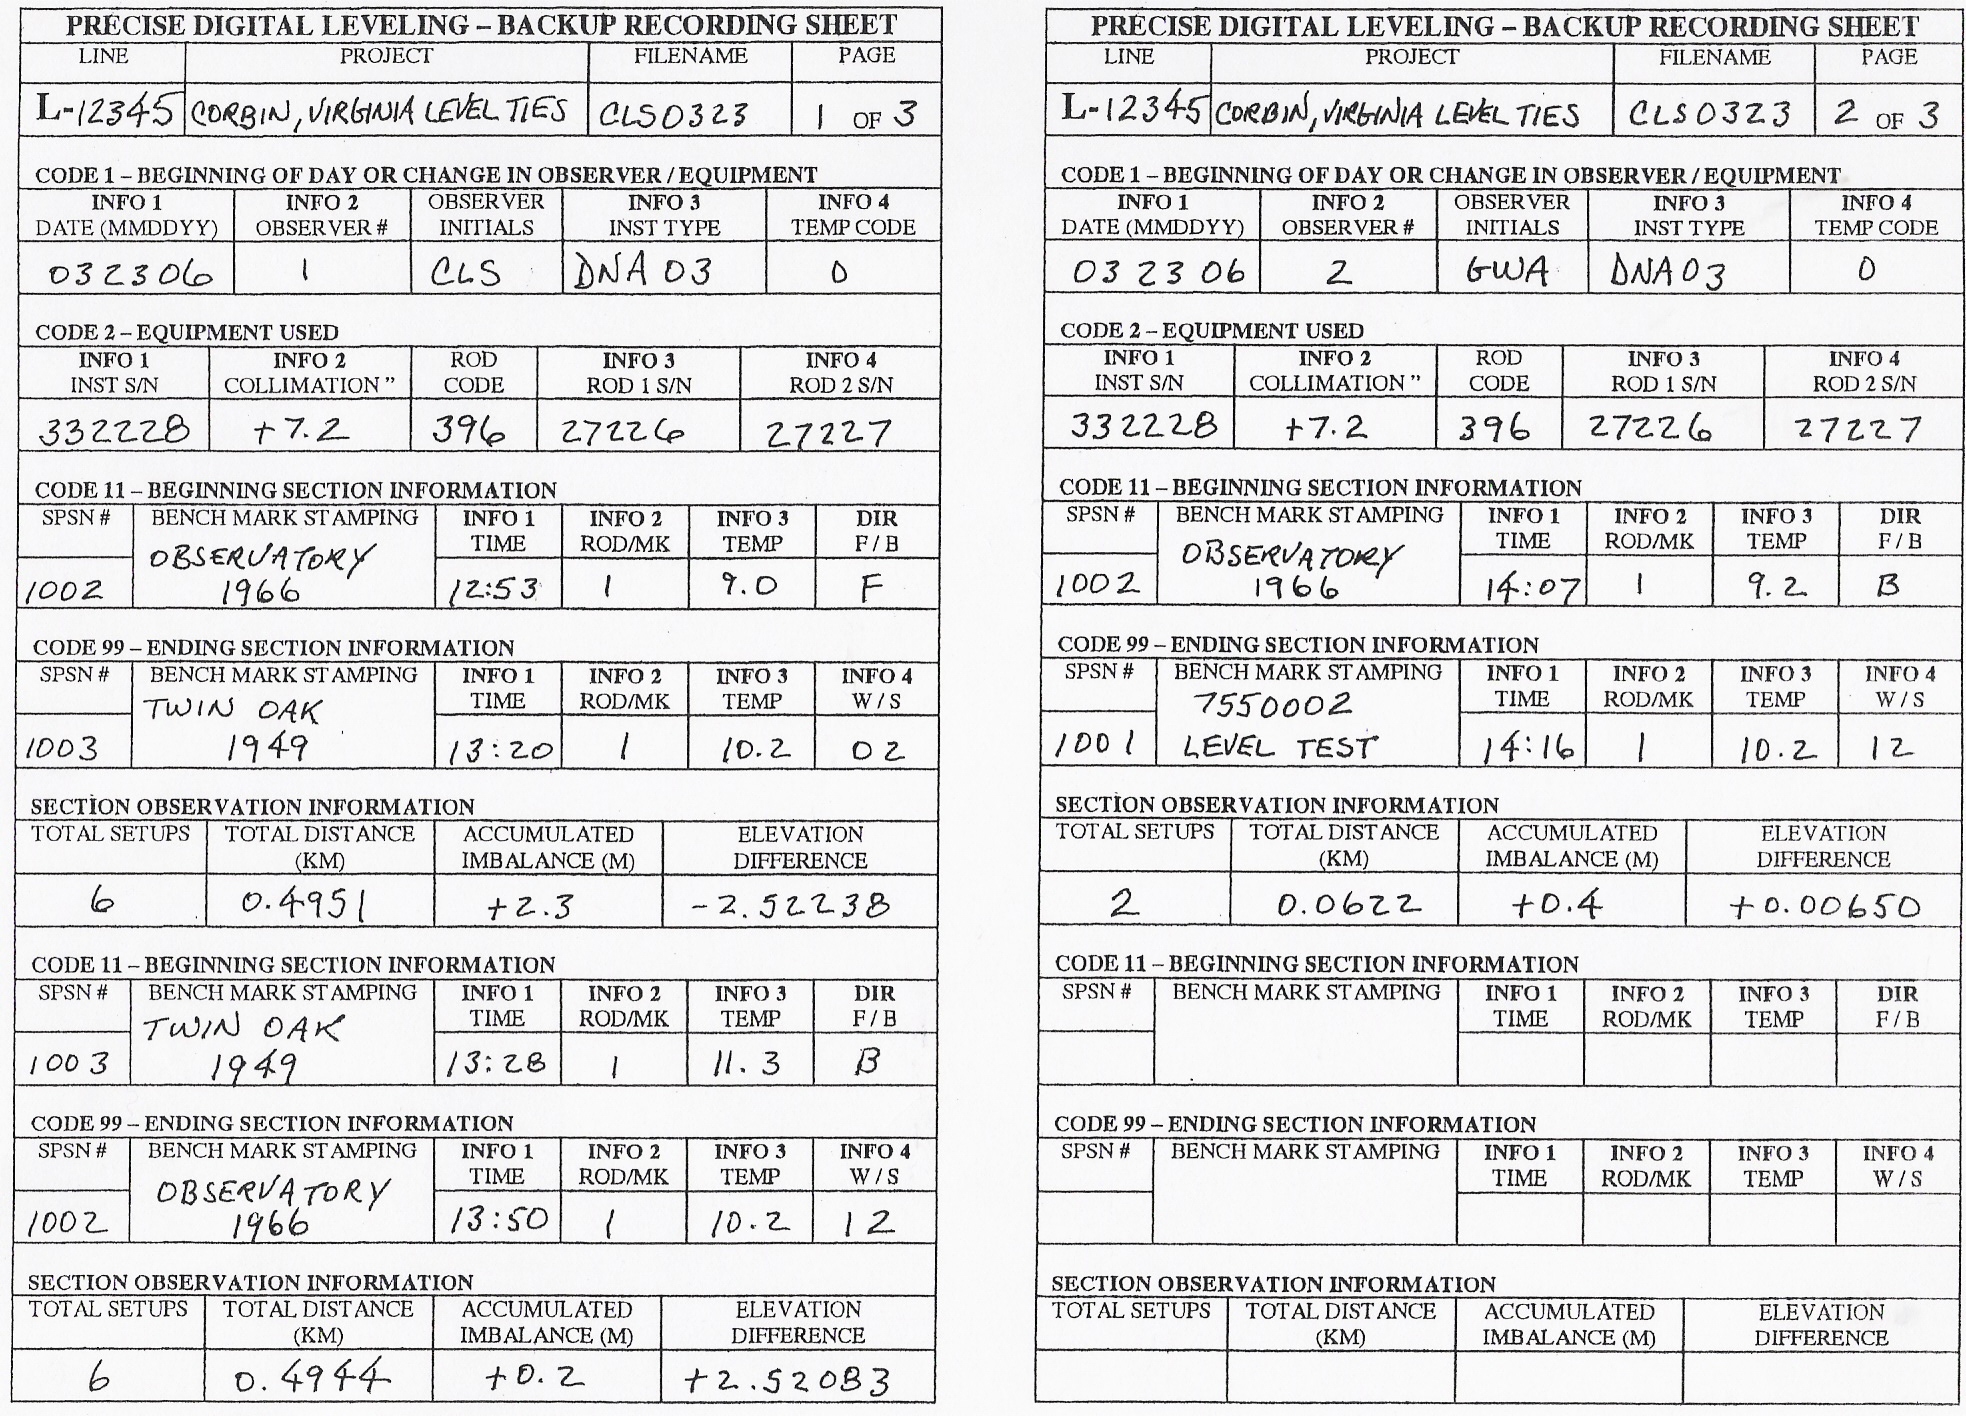 PRECISE DIGITAL LEVELING – BACKUP RECORDING SHEET
LINE PROJECT FILENAME PAGE
L-12345 CORBIN, VIRGINIA LEVEL TIES CLS0323 1 OF 3
CODE 1 – BEGINNING OF DAY OR CHANGE IN OBSERVER / EQUIPMENT
INFO 1 INFO 2 OBSERVER INFO 3 INFO 4
DATE (MMDDYY) OBSERVER # INITIALS INST TYPE TEMP CODE
032306 1 CLS DNA 03 0
CODE 2 – EQUIPMENT USED
INFO 1 INFO 2 ROD INFO 3 INFO 4
INST S/N COLLIMATION " CODE ROD 1 S/N ROD 2 S/N
332228 +7.2 396 27226 27227
CODE 11 – BEGINNING SECTION INFORMATION
SPSN # BENCH MARK STAMPING INFO 1 INFO 2 INFO 3 DIR
TIME ROD/MK TEMP F / B
OBSERVATORY
1002 1966 12:53 1 9.0 F
CODE 99 – ENDING SECTION INFORMATION
SPSN # BENCH MARK STAMPING INFO 1 INFO 2 INFO 3 INFO 4
TIME ROD/MK TEMP W / S
TWIN OAK
1003 1949 13:20 1 10.2 02
SECTION OBSERVATION INFORMATION
TOTAL SETUPS TOTAL DISTANCE ACCUMULATED ELEVATION
(KM) IMBALANCE (M) DIFFERENCE
6 0.4951 +2.3 -2.52238
CODE 11 – BEGINNING SECTION INFORMATION
SPSN # BENCH MARK STAMPING INFO 1 INFO 2 INFO 3 DIR
TIME ROD/MK TEMP F / B
TWIN OAK
1003 1949 13:28 1 11.3 B
CODE 99 – ENDING SECTION INFORMATION
SPSN # BENCH MARK STAMPING INFO 1 INFO 2 INFO 3 INFO 4
TIME ROD/MK TEMP W / S
OBSERVATORY
1002 1966 13:50 1 10.2 12
SECTION OBSERVATION INFORMATION
TOTAL SETUPS TOTAL DISTANCE ACCUMULATED ELEVATION
(KM) IMBALANCE (M) DIFFERENCE
6 0.4944 +0.2 +2.52083
PRECISE DIGITAL LEVELING – BACKUP RECORDING SHEET
LINE PROJECT FILENAME PAGE
L-12345 CORBIN, VIRGINIA LEVEL TIES CLS0323 2 OF 3
CODE 1 – BEGINNING OF DAY OR CHANGE IN OBSERVER / EQUIPMENT
INFO 1 INFO 2 OBSERVER INFO 3 INFO 4
DATE (MMDDYY) OBSERVER # INITIALS INST TYPE TEMP CODE
032306 2 GWA DNA03 0
CODE 2 – EQUIPMENT USED
INFO 1 INFO 2 ROD INFO 3 INFO 4
INST S/N COLLIMATION " CODE ROD 1 S/N ROD 2 S/N
332228 +7.2 396 27226 27227
CODE 11 – BEGINNING SECTION INFORMATION
SPSN # BENCH MARK STAMPING INFO 1 INFO 2 INFO 3 DIR
TIME ROD/MK TEMP F / B
OBSERVATORY
1002 1966 14:07 1 9.2 B
CODE 99 – ENDING SECTION INFORMATION
SPSN # BENCH MARK STAMPING INFO 1 INFO 2 INFO 3 INFO 4
TIME ROD/MK TEMP W / S
7550002
1001 LEVEL TEST 14:16 1 10.2 12
SECTION OBSERVATION INFORMATION
TOTAL SETUPS TOTAL DISTANCE ACCUMULATED ELEVATION
(KM) IMBALANCE (M) DIFFERENCE
2 0.0622 +0.4 +0.00650
CODE 11 – BEGINNING SECTION INFORMATION
SPSN # BENCH MARK STAMPING INFO 1 INFO 2 INFO 3 DIR
TIME ROD/MK TEMP F / B
CODE 99 – ENDING SECTION INFORMATION
SPSN # BENCH MARK STAMPING INFO 1 INFO 2 INFO 3 INFO 4
TIME ROD/MK TEMP W / S
SECTION OBSERVATION INFORMATION
TOTAL SETUPS TOTAL DISTANCE ACCUMULATED ELEVATION
(KM) IMBALANCE (M) DIFFERENCE